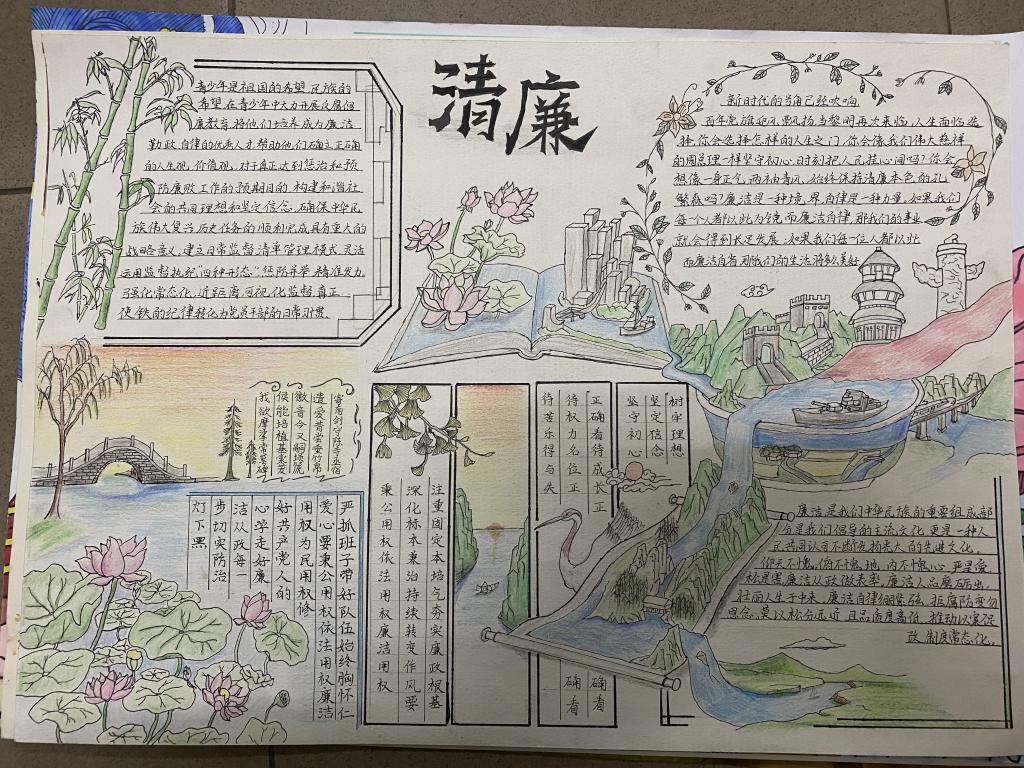 清廉
青少年是祖国的希望,民族的
希望,在青少年中大力开展反腐倡
廉教育,将他们培养成为廉洁
勤政,自律的优秀人才,帮助他们确立正确
的人生观,价值观,对于真正达到惩治和预
防腐败工作的预期目的,构建和谐社
会的共同理想和坚定信念,确保中华民
族伟大复兴历史任务的顺利完成具有重大的
战略意义,建立日常监督清单管理模式,灵活
运用监督执纪“四种形态”惩防并举,精准发力
强化常态化,近距离可视化监督,真正
使铁的纪律转化为党员干部的日常习惯。
新时代的号角已经吹响
百年党旗迎风飘扬,当黎明再次来临,人生面临选
择,你会选择怎样的人生之门,你会像我们伟大慈祥
的周总理一样坚守初心,时刻把人民挂心间吗?你会
想像一身正气,两袖清风,始终保持清廉本色的孔
繁森吗?廉洁是一种境界,自律是一种力量,如果我们
每个人都以此为镜,而廉洁自律,那我们的事业
就会得到长足发展,如果我们每一位人都以此
而廉洁自省,可我们的生活将多么美好
遗爱昔常童竹吊
徽音今又嗣
候能培植基
我欲摩挲
严抓班子带好队伍始终胸怀仁
爱心要秉公用权依法用权廉洁
用权为民用权修
好共产党人的
心学走好廉
洁从政每一
步切实防治
灯下黑
注重固定本培气夯实廉政根基
深化标本兼治持续转变作风要
秉公用权依法用权廉洁用权
树牢理想
坚定信念
坚守初心
正确看待成长正
确看
待权力名位正
确看
待苦乐得与失
廉洁是我们中华民族的重要组成部
分是我们倡导的主流文化,更是一种人
民共同认可不断发扬光大的先进文化,
仰天不愧,俯不愧地,内不愧心,严是爱
松是害,廉洁从政做表率,廉洁人品磨砺出,
壮丽人生于中来,廉洁自律绷紧弦,拒腐防变勿
思念,莫以权分远近,且品质度高低,推动以案促
改,制度常态化。